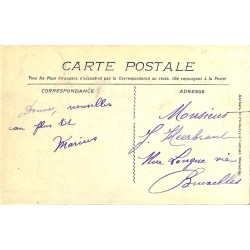 CARTE POSTALE
Tous les Pays étrangers n'acceptent pas la Correspondance au recto. (Se renseigner à la Poste)
CORRESPONDANCE
ADRESSE
Donne nouvelles
au plus tôt
Marius
Monsieur
J. Heerbrant
Rue Longue vie
Bruxelles